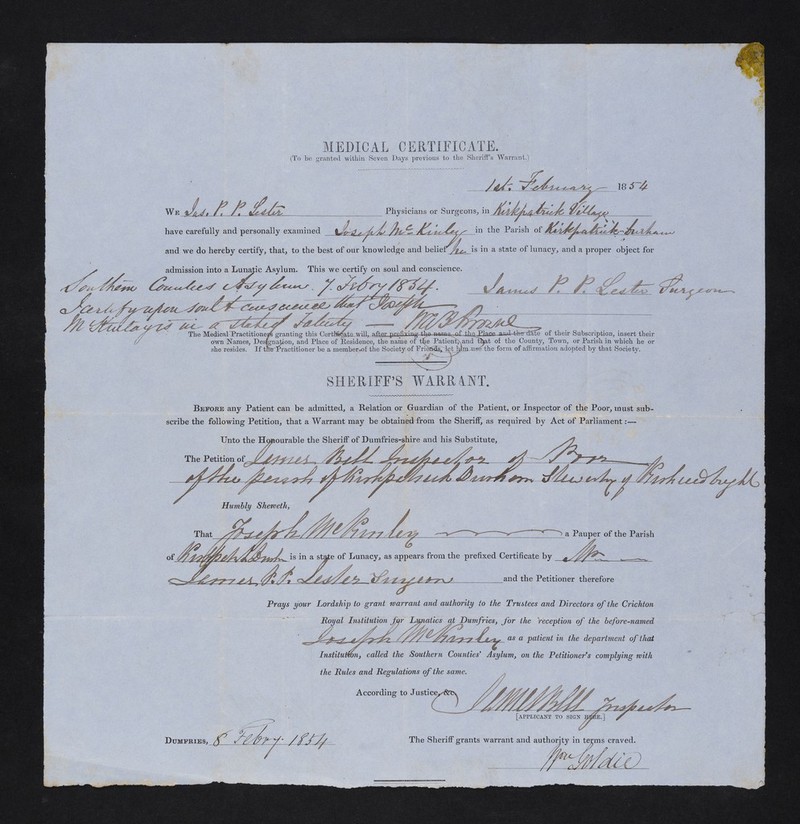 MEDICAL CERTIFICATE.
(To be granted within Seven Days previous to the Sheriff's Warrant.)
1st. February 1854
WE Jas. P. P. Lester Physicians or Surgeons, in Kirkpatrick Village
have carefully and personally examined Joseph McKinley in the Parish of Kirkpatrick-Durham
and we do hereby certify, that, to the best of our knowledge and belief he is in a state of lunacy, and a proper object for
admission into a Lunatic Asylum. This we certify on soul and conscience.
James P. P. Lester Surgeon
Southern Counties Asylum. 7 Febry 1854.
I certify upon soul & conscience that Joseph
McKinlay is in a state of fatuity — W A F Browne
The Medical Practitioners granting this Certificate will, after prefixing the name of the Place and the date of their Subscription, insert their
own Names, Designation, and Place of Residence, the name of the Patient, and that of the County, Town, or Parish in which he or
she resides. If the Practitioner be a member of the Society of Friends, let him use the form of affirmation adopted by that Society.
SHERIFF'S WARRANT.
BEFORE any Patient can be admitted, a Relation or Guardian of the Patient, or Inspector of the Poor, must sub-
scribe the following Petition, that a Warrant may be obtained from the Sheriff, as required by Act of Parliament :—
Unto the Honourable the Sheriff of Dumfries-shire and his Substitute,
The Petition of James Bell Inspector of Poor
of the parish of Kirkpatrick Durham Stewartry of Kirkcudbright
Humbly Sheweth,
That Joseph McKinley a Pauper of the Parish
of Kirkpatrick Durham is in a state of Lunacy, as appears from the prefixed Certificate by Mr
James P. P. Lester Surgeon and the Petitioner therefore
Prays your Lordship to grant warrant and authority to the Trustees and Directors of the Crichton
Royal Institution for Lunatics at Dumfries, for the reception of the before-named
Joseph McKinley as a patient in the department of that
Institution, called the Southern Counties' Asylum, on the Petitioner's complying with
the Rules and Regulations of the same.
According to Justice, &c.
James Bell Inspector
[APPLICANT TO SIGN HERE.]
DUMFRIES, 8 Febry 1854 The Sheriff grants warrant and authority in terms craved.
Wm Goldie